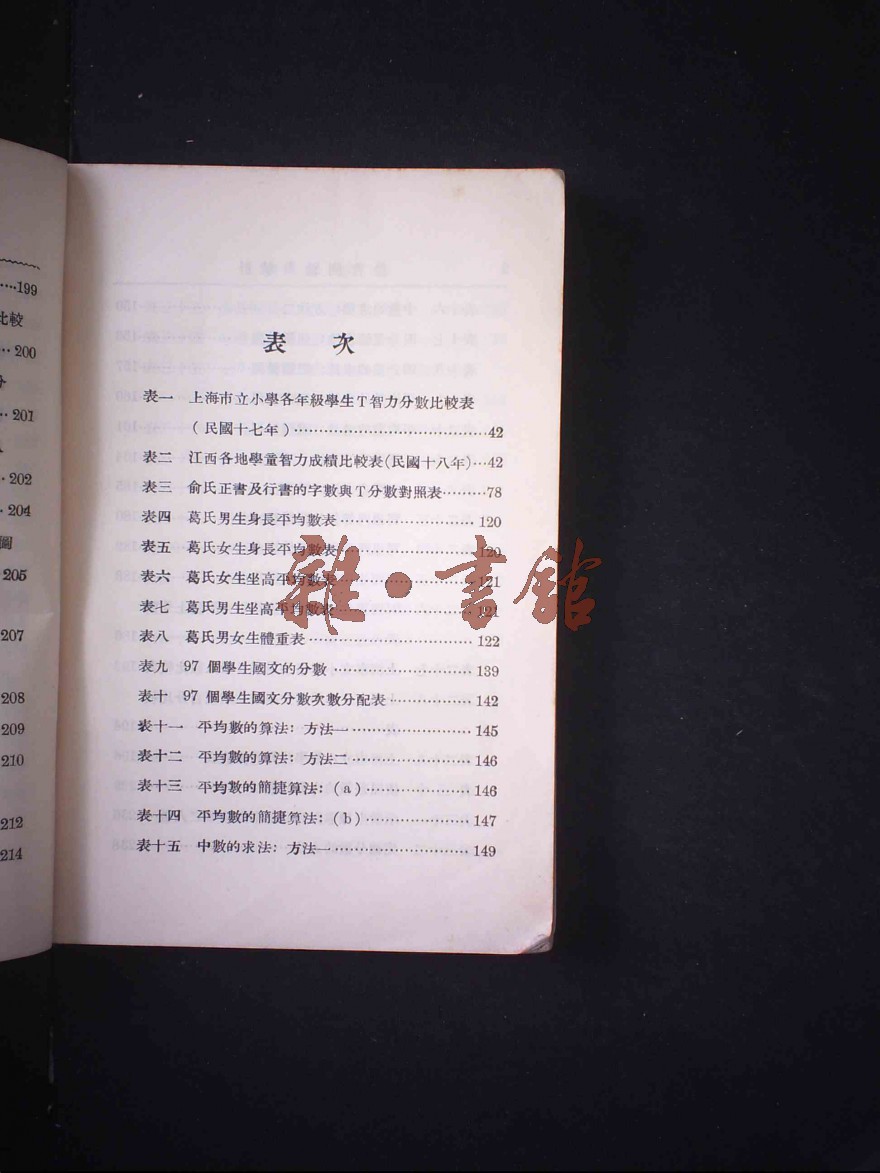 ····199
比較
··· 200
·· 201
· 202
· 204
圖
205
207
208
209
210
212
214
表 次
表一 上海市立小學各年級學生T智力分數比較表
(民國十七年)····································42
表二 江西各地學童智力成績比較表(民國十八年)···42
表三 俞氏正書及行書的字數與T分數對照表·········78
表四 葛氏男生身長平均數表························120
表五 葛氏女生身長平均數表························120
表六 葛氏女生坐高平均數表························121
表七 葛氏男生坐高平均數表························121
表八 葛氏男女生體重表····························122
表九 97 個學生國文的分數························139
表十 97 個學生國文分數次數分配表···············142
表十一 平均數的算法：方法一·····················145
表十二 平均數的算法：方法二·····················146
表十三 平均數的簡捷算法：(a)···················146
表十四 平均數的簡捷算法：(b)···················147
表十五 中數的求法：方法一························149
雜·書館